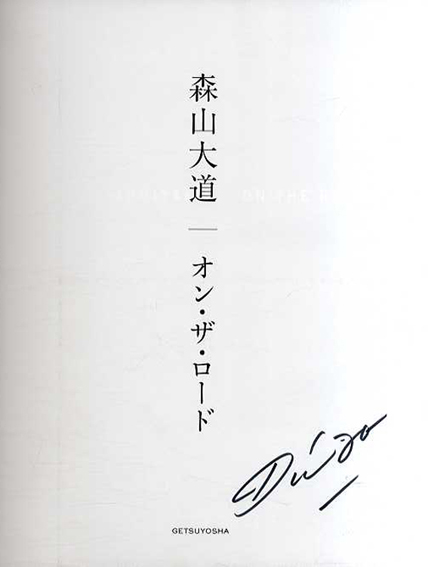 森山大道
オン・ザ・ロード
ON THE
Daido
GETSUYOSHA